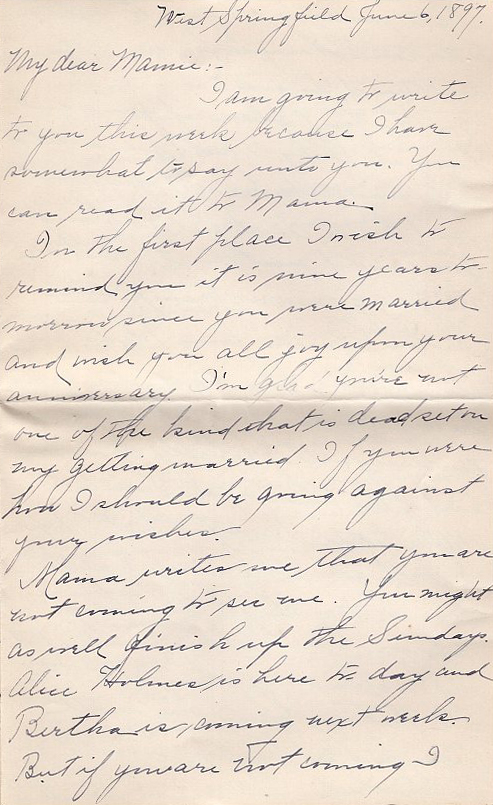 West Springfield June 6, 1897.
My dear Mamie:-
I am going to write
to you this week because I have
somewhat to say unto you. You
can read it to Mama.
In the first place I wish to
remind you it is nine years to-
morrow since you were married
and wish you all joy upon your
anniversary. I'm glad you're not
one of the kind that is dead set on
my getting married. If you were
how I should be going against
your wishes.
Mama writes me that you are
not coming to see me. You might
as well finish up the Sundays.
Alice Holmes is here to-day and
Bertha is coming next week.
But if you are not coming I